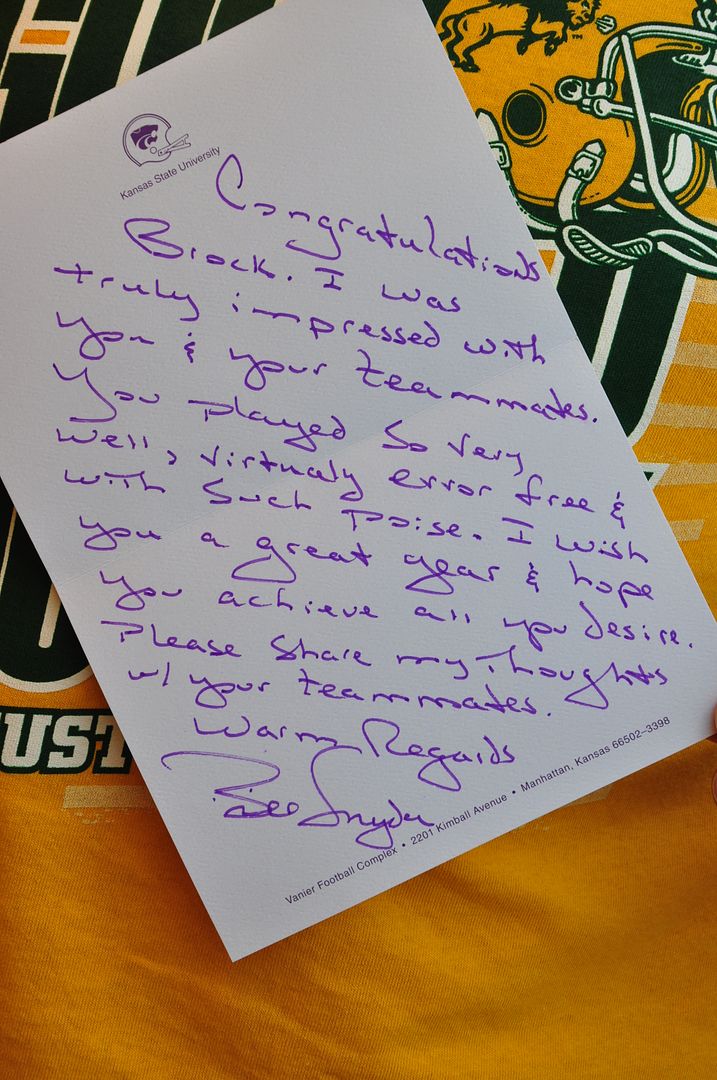 Kansas State University
Congratulations
Brock. I was
truly impressed with
you & your teammates.
You played so very
well, virtualy error free &
with such poise. I wish
you a great year & hope
you achieve all you desire.
Please share my thoughts
w/ your teammates.
Warm Regards
Bill Snyder
Vanier Football Complex • 2201 Kimball Avenue • Manhattan, Kansas 66502–3398
UST
TM